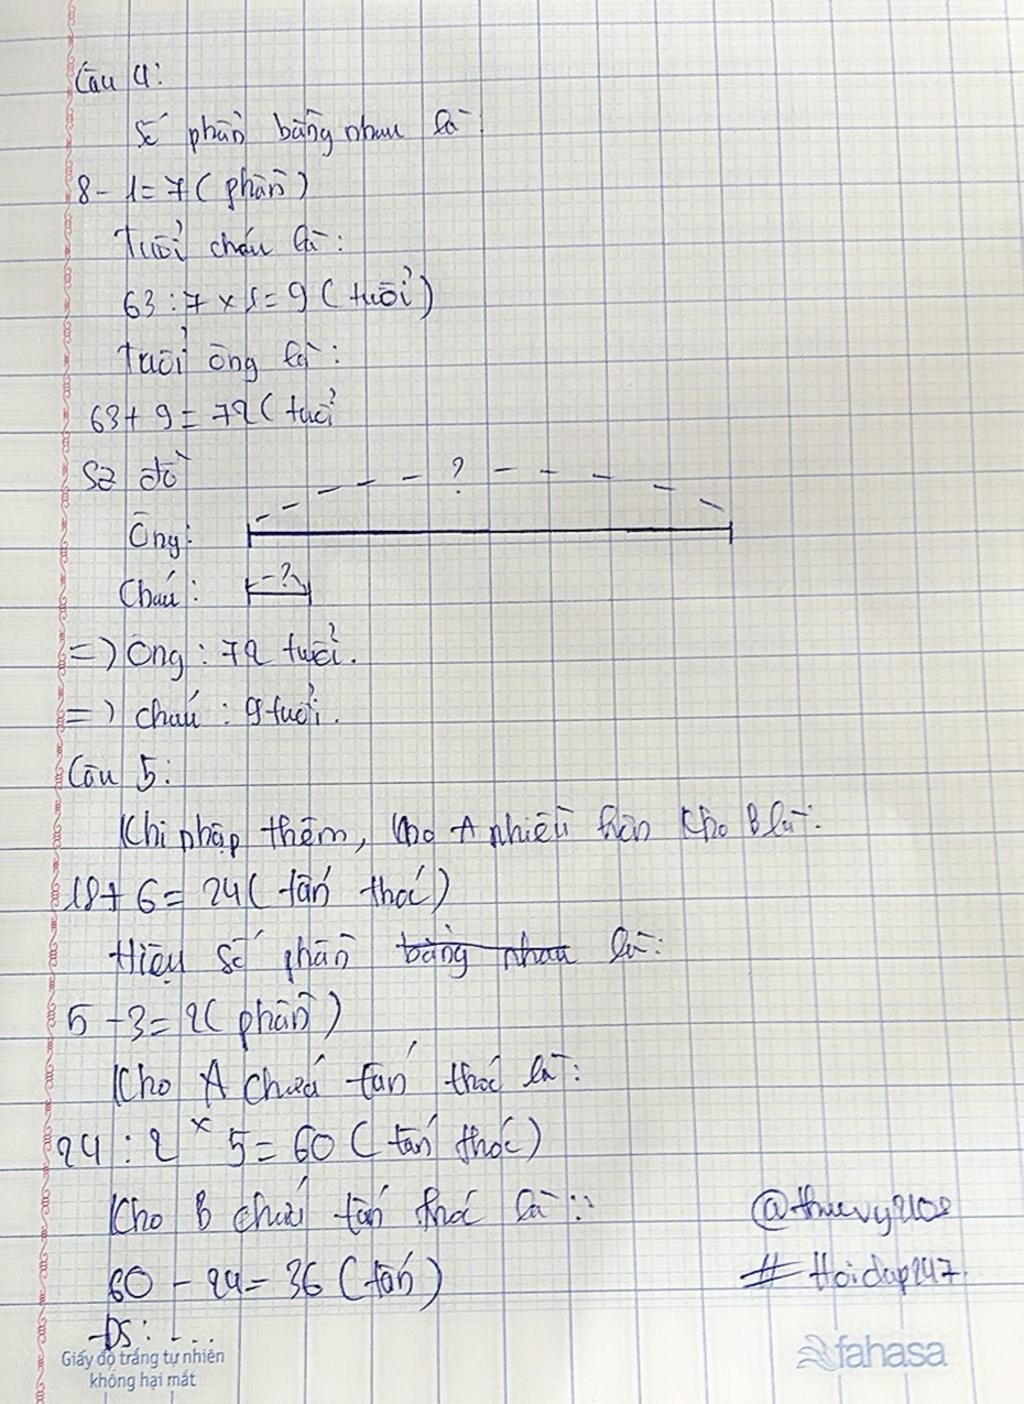 Câu 4:
Số phần bằng nhau là
8 - 1 = 7 ( phần )
Tuổi cháu là :
63 : 7 x 1 = 9 ( tuổi )
Tuổi ông là :
63 + 9 = 72 ( tuổi
Sơ đồ
?
Ông :
?
Cháu :
=> Ông : 72 tuổi.
=> cháu : 9 tuổi.
Câu 5:
Khi nhập thêm, kho A nhiều hơn kho B là :
18 + 6 = 24 ( tấn thóc )
Hiệu số phần bằng nhau là :
5 - 3 = 2 ( phần )
Kho A chứa tấn thóc là :
24 : 2 x 5 = 60 ( tấn thóc )
Kho B chứa tấn thóc là :
60 - 24 = 36 ( tấn )
@thuevy2108
# Hoidap247.
ĐS : ....
Giấy độ trắng tự nhiên
không hại mắt
fahasa